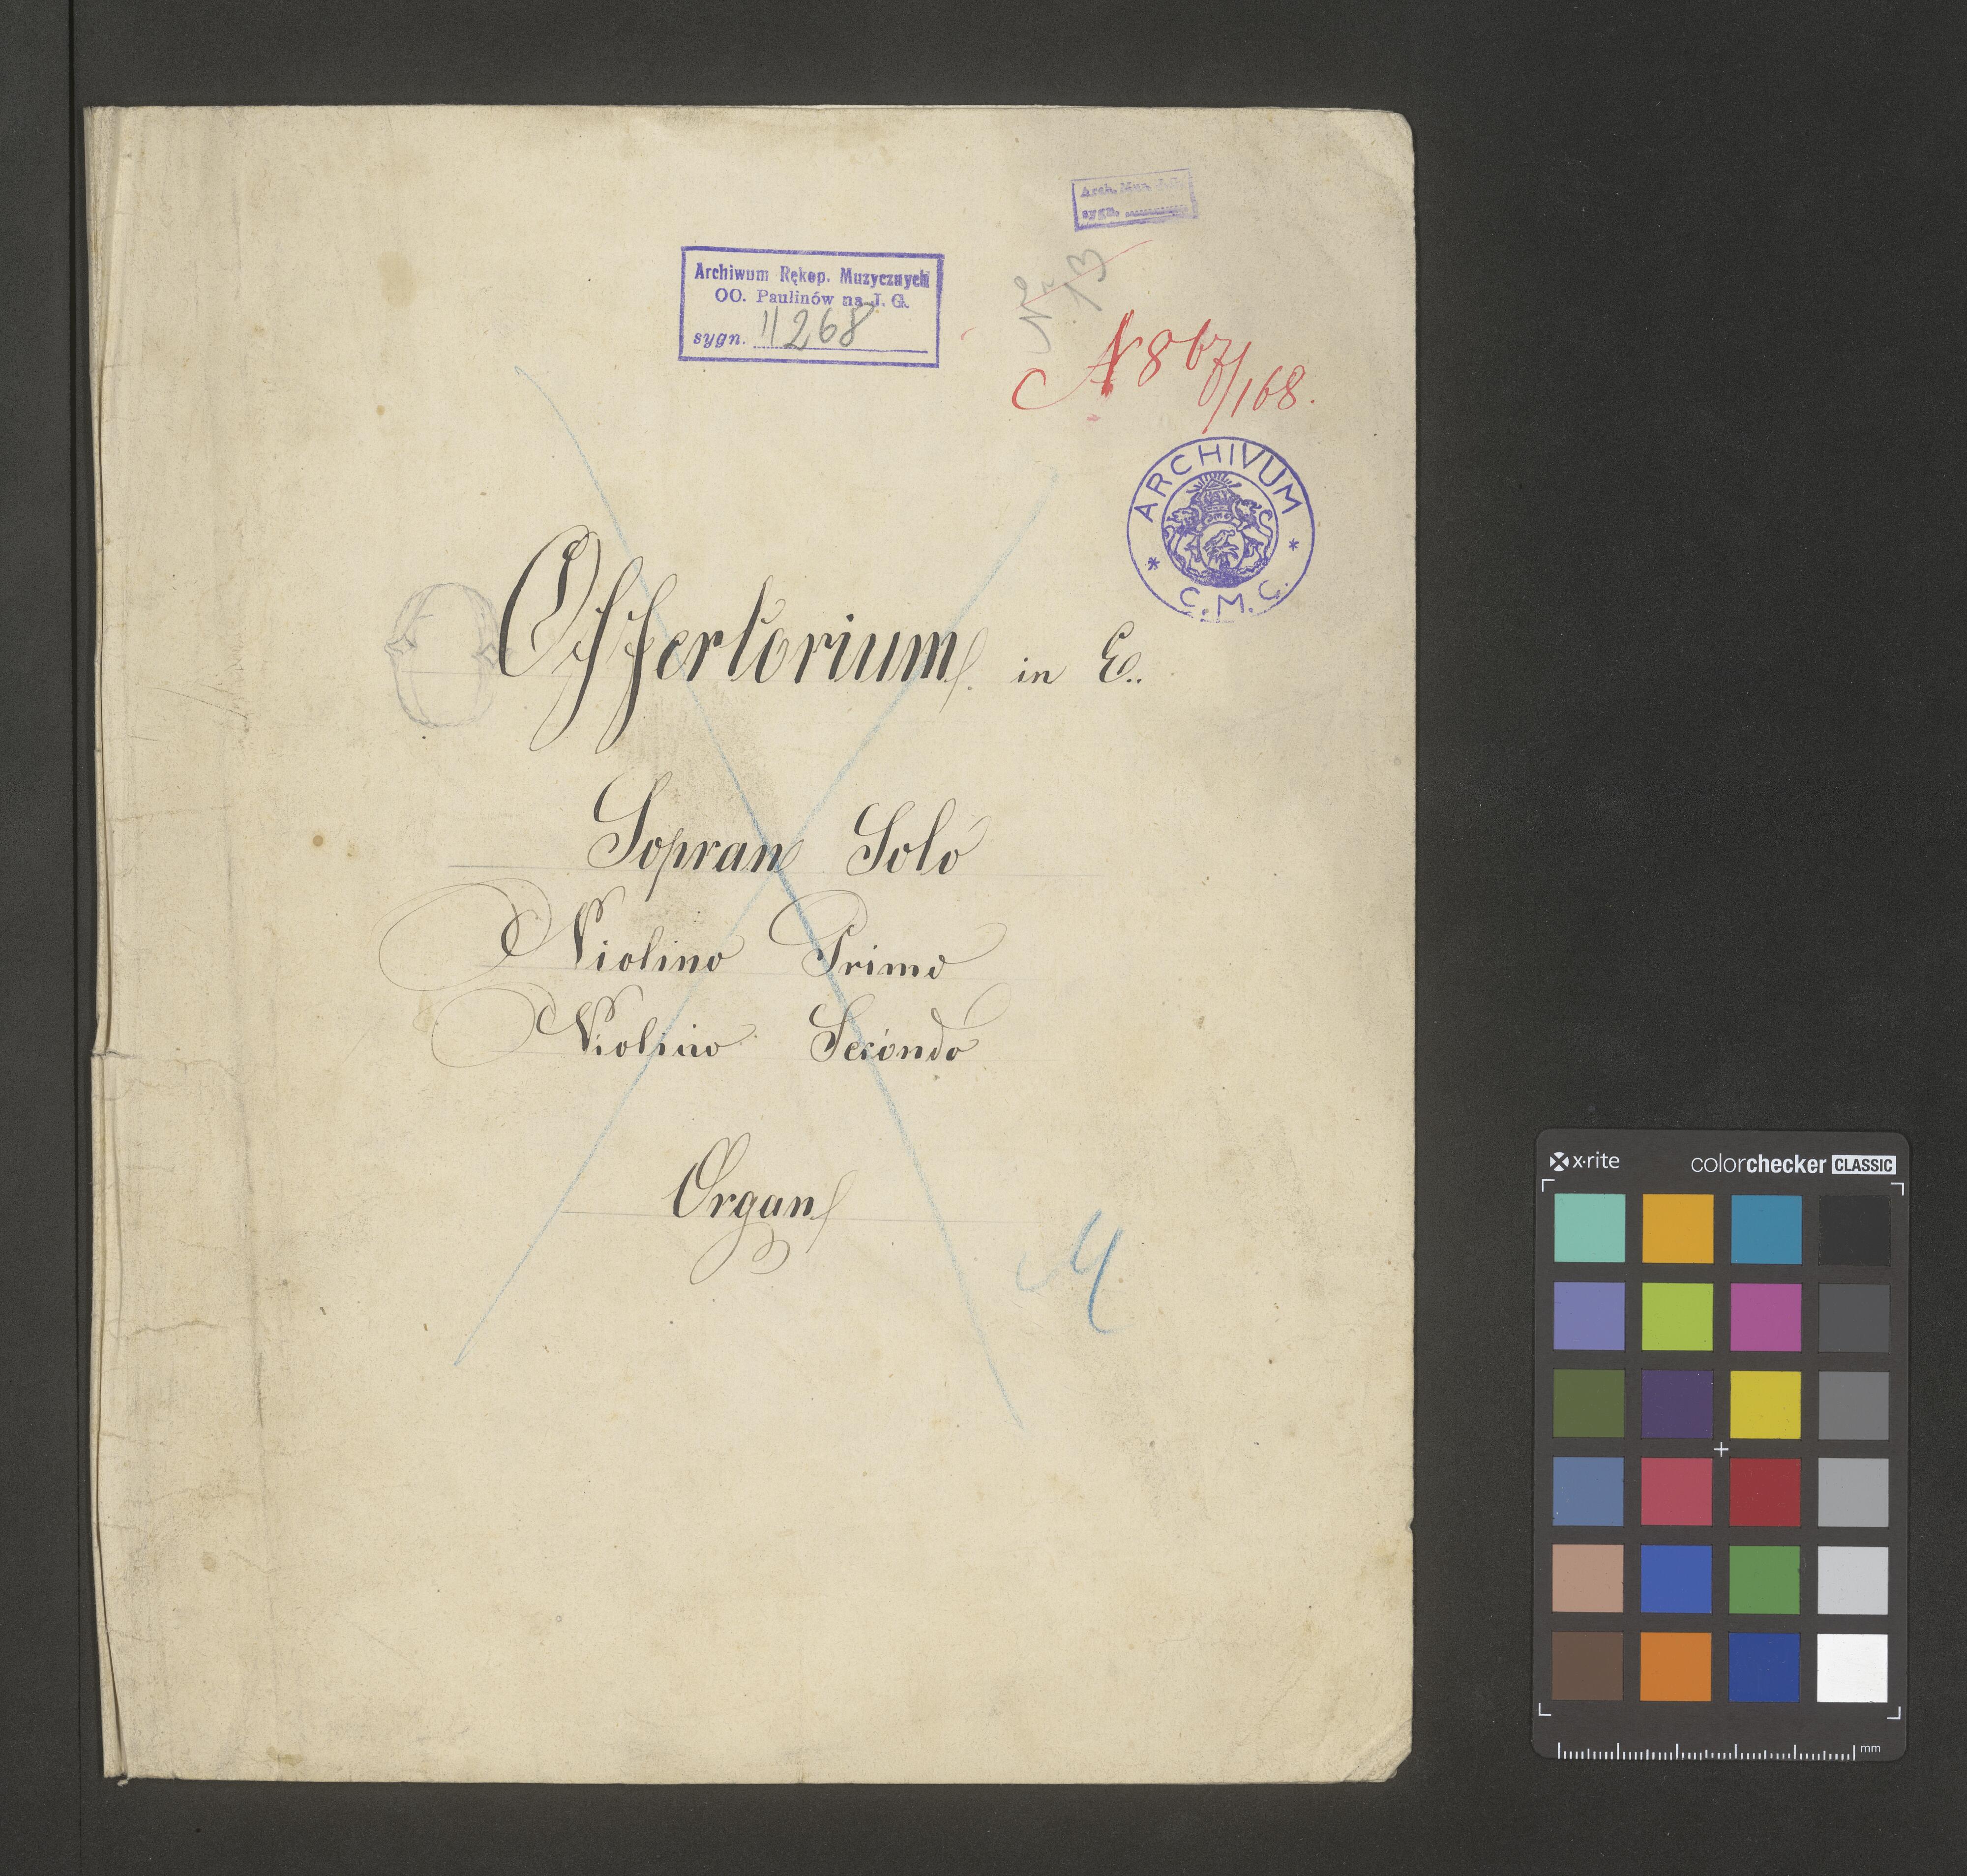 Arch. Mus.
sygn.
Archiwum Rękop. Muzycznych
OO. Paulinów na J. G.
sygn. II 268
No 13
N 867/168.
ARCHIVUM
* C. M. C. *
Offertorium in E..
Sopran Solo
Violino Primo
Violino Secondo
Organ
x-rite colorchecker CLASSIC
mm